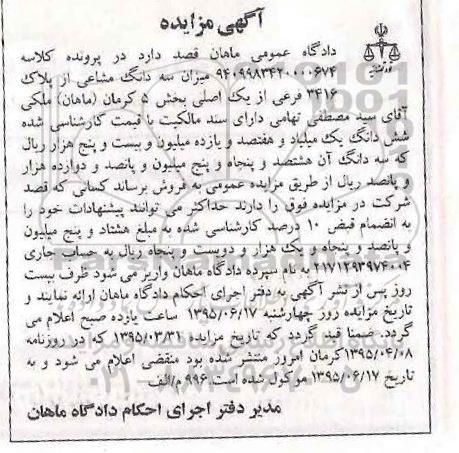 آگهی مزایده
دادگاه عمومی ماهان قصد دارد در پرونده کلاسه
۹۴۰۹۹۸۳۴۲۰۰۰۰۶۷۴ میزان سه دانگ مشاعی از پلاک
۳۴۱۶ فرعی از یک اصلی بخش ۵ کرمان (ماهان) ملکی
آقای سید مصطفی تهامی دارای سند مالکیت با قیمت کارشناسی شده
شش دانگ یک میلیاد و هفتصد و یازده میلیون و بیست و پنج هزار ریال
که سه دانگ آن هشتصد و پنجاه و پنج میلیون و پانصد و دوازده هزار
و پانصد ریال از طریق مزایده عمومی به فروش برساند کسانی که قصد
شرکت در مزایده فوق را دارند حداکثر می توانند پیشنهادات خود را
به انضمام قبض ۱۰ درصد کارشناسی شده به مبلغ هشتاد و پنج میلیون
و پانصد و پنجاه و یک هزار و دویست و پنجاه ریال به حساب جاری
۲۱۷۱۲۹۳۹۷۴۰۰۴ به نام سپرده دادگاه ماهان واریز می شود ظرف بیست
روز پس از نشر آگهی به دفتر اجرای احکام دادگاه ماهان ارائه نمایند و
تاریخ مزایده روز چهارشنبه ۱۳۹۵/۰۶/۱۷ ساعت یازده صبح اعلام می
گردد. ضمنا قید گردد که تاریخ مزایده ۱۳۹۵/۰۳/۳۱ که در روزنامه
۱۳۹۵/۰۴/۰۸کرمان امروز منتشر شده بود منقضی اعلام می شود و به
تاریخ ۱۳۹۵/۰۶/۱۷ موکول شده است.۹۹۶ م/الف
مدیر دفتر اجرای احکام دادگاه ماهان